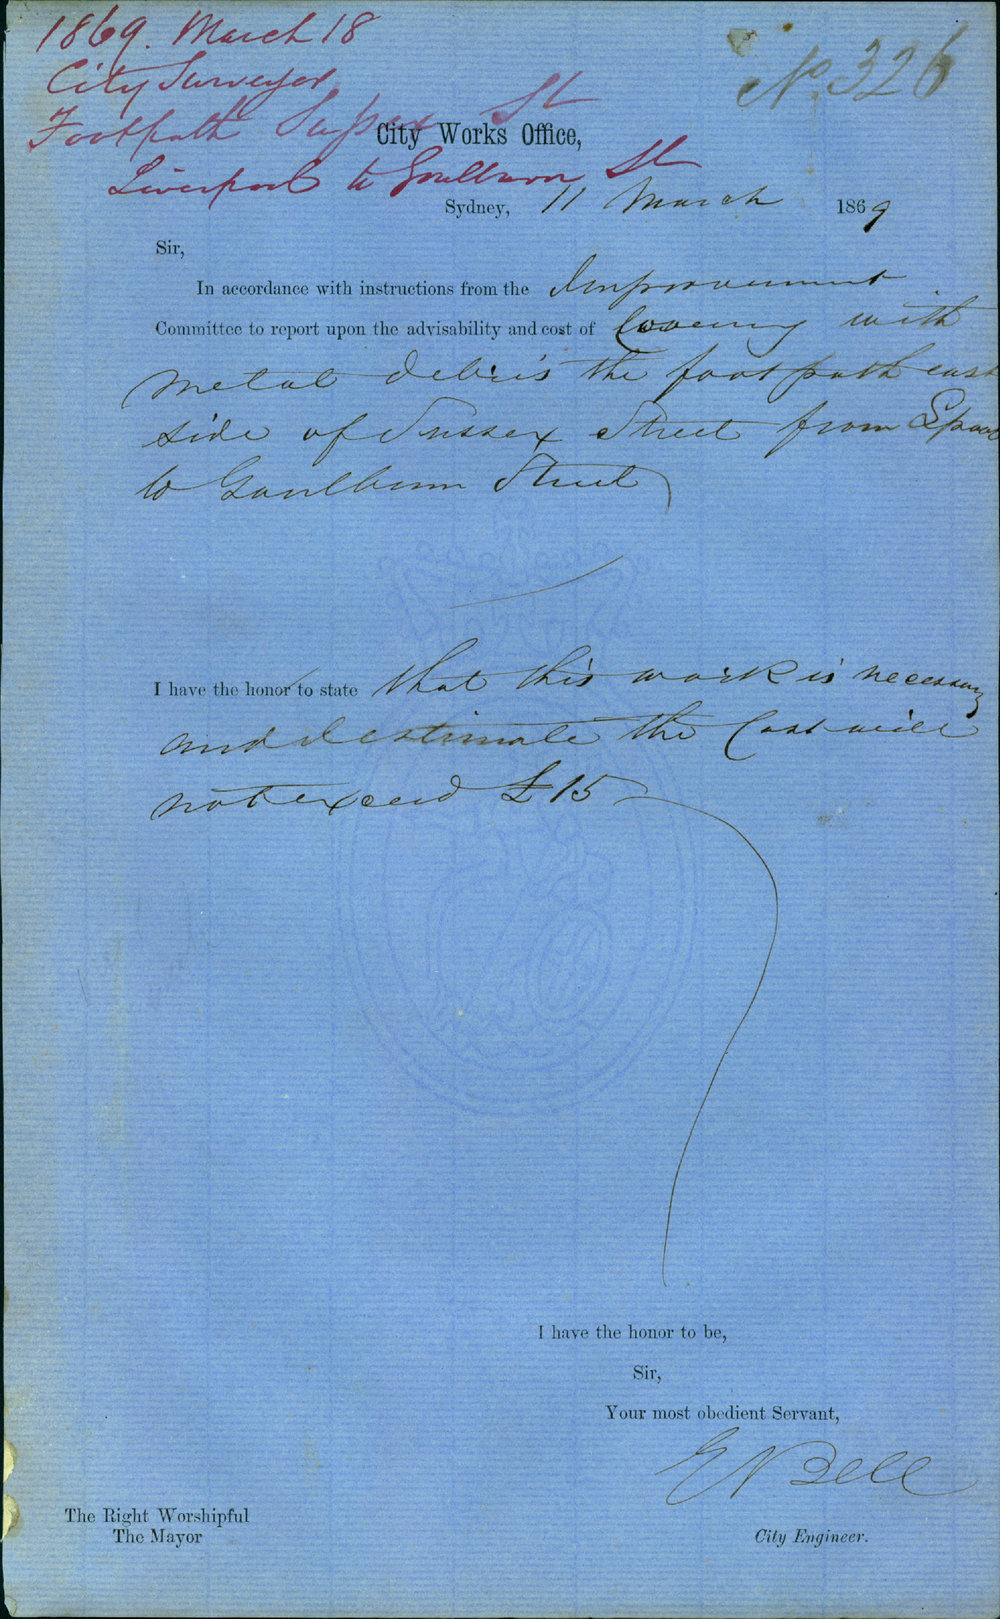 1869. March 18
City Surveyor
No. 326
Footpath Sussex St
City Works Office,
Liverpool to Goulburn St
Sydney, 11 March 1869
Sir,
In accordance with instructions from the Improvement
Committee to report upon the advisability and cost of Covering with
metal debris the footpath east
side of Sussex Street from Lpool
to Goulburn Street
I have the honor to state that this work is necessary
and I estimate the Cost will
not exceed £15
I have the honor to be,
Sir,
Your most obedient Servant,
E Bell
The Right Worshipful
The Mayor
City Engineer.